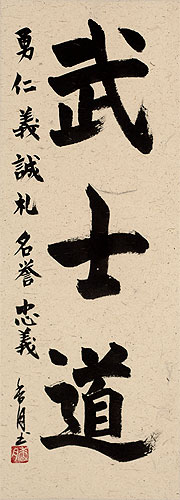 武士道
勇仁義誠礼名誉忠義